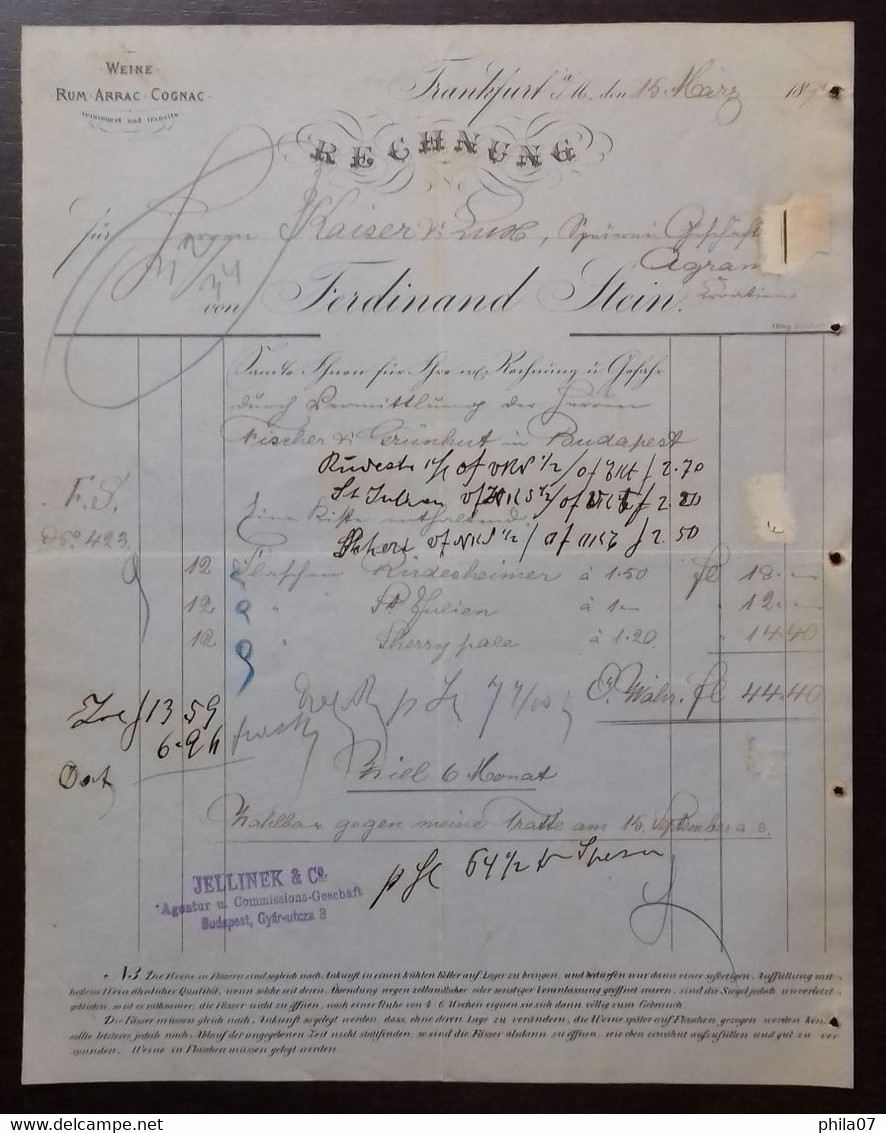 WEINE
RUM · ARRAC · COGNAC
versteuert und transito
Frankfurt a/M, den 15 März 189
RECHNUNG
für Herren Kaiser & Lux, Spezerei Geschäft
Agram
Croatien
von Ferdinand Stein.
Sandte Ihnen für Ihre Rechnung u Gefahr
durch Vermittlung der Herren
Fischer & Grünhut in Budapest
Rüdesh 1/2 / of f 2.70
St Julien 1/2 / of f 2.20
F. S.
Eine Kiste enthaltend:
No. 423.
Sherry 1/2 / of f 2.50
12 Flaschen Rüdesheimer à 1.50 fl 18.—
12 " St Julien à 1— " 12.—
12 " Sherry pale à 1.20 " 14.40
Ö. Währ. fl 44.40
13 59
6.96
Ziel 6 Monat
Zahlbar gegen meine Tratte am 15. September a. c.
64 1/2 Spesen
JELLINEK & Co.
Agentur u. Commissions-Geschäft
Budapest, Gyár-utcza 8
NB Die Weine in Fässern sind sogleich nach Ankunft in einen kühlen Keller auf Lager zu bringen, und bedürfen nur dann einer sofortigen Auffüllung mit
hellem Wein ähnlicher Qualität, wenn solche seit deren Absendung wegen zollamtlicher oder sonstiger Veranlassung geöffnet waren, sind die Siegel jedoch unverletzt
geblieben, so ist es rathsamer, die Fässer nicht zu öffnen, nach einer Ruhe von 4-6 Wochen eignen sie sich dann völlig zum Gebrauch.
Die Fässer müssen gleich nach Ankunft so gelegt werden, dass, ohne deren Lage zu verändern, die Weine später auf Flaschen gezogen werden kön
sollte letzteres jedoch nach Ablauf der angegebenen Zeit nicht stattfinden, so sind die Fässer alsdann zu öffnen, wie oben erwähnt aufzufüllen und gut zu ver
spunden. Weine in Flaschen müssen gelegt werden.
www.delcampe.net
phila07